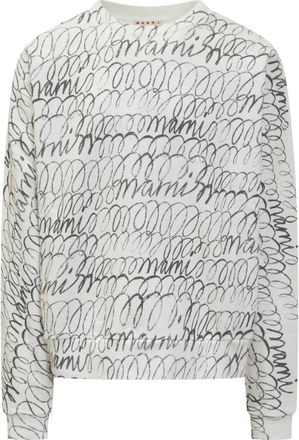 MARNI
marni
marni
marni
marni
marni
marni
marni
marni
marni
marni